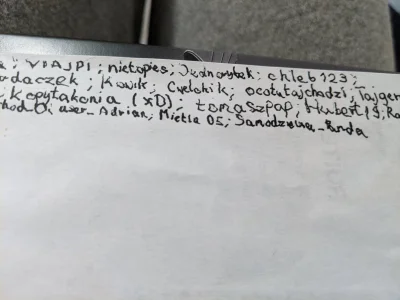 ; VIAJPI; nietopies; Jednorybek; chleb123;
odaczek; Kowik; Cyelonik; ocotutajchodzi; Tajger
Kopytakonia (xD); tomaszpap; Hubert19; Ra
hod Oi user_Adrian; Mietla 05; Samodzielna_Panda